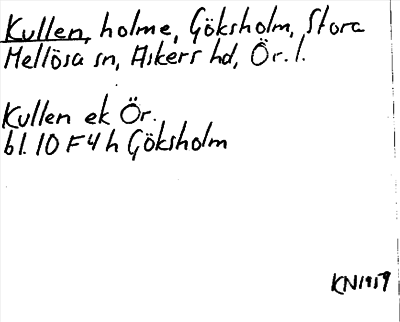 Kullen, holme, Göksholm, Stora
Mellösa sn, Askers hd, Ör. l.
Kullen ek Ör.
bl. 10 F 4 h Göksholm
KN 1959